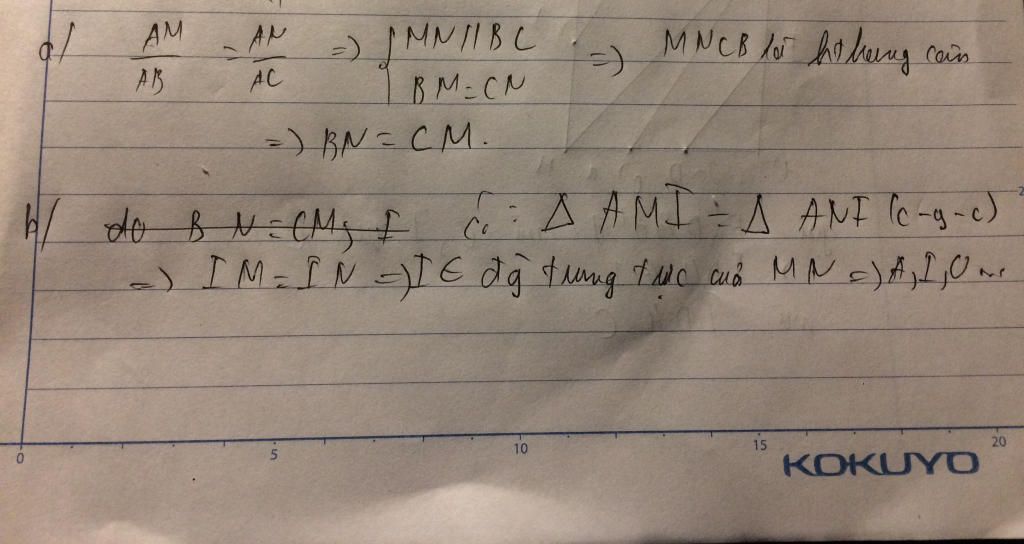 a/ AM/AB = AN/AC => { MN // BC BM = CN => MNCB là hthang cân
=> BN = CM.
b/ do BN = CM; I Có: Δ AMI = Δ ANI (c-g-c)
=> IM = IN => I ∈ đg trung trực của MN => A, I, O
0 5 10 15 20
KOKUYO